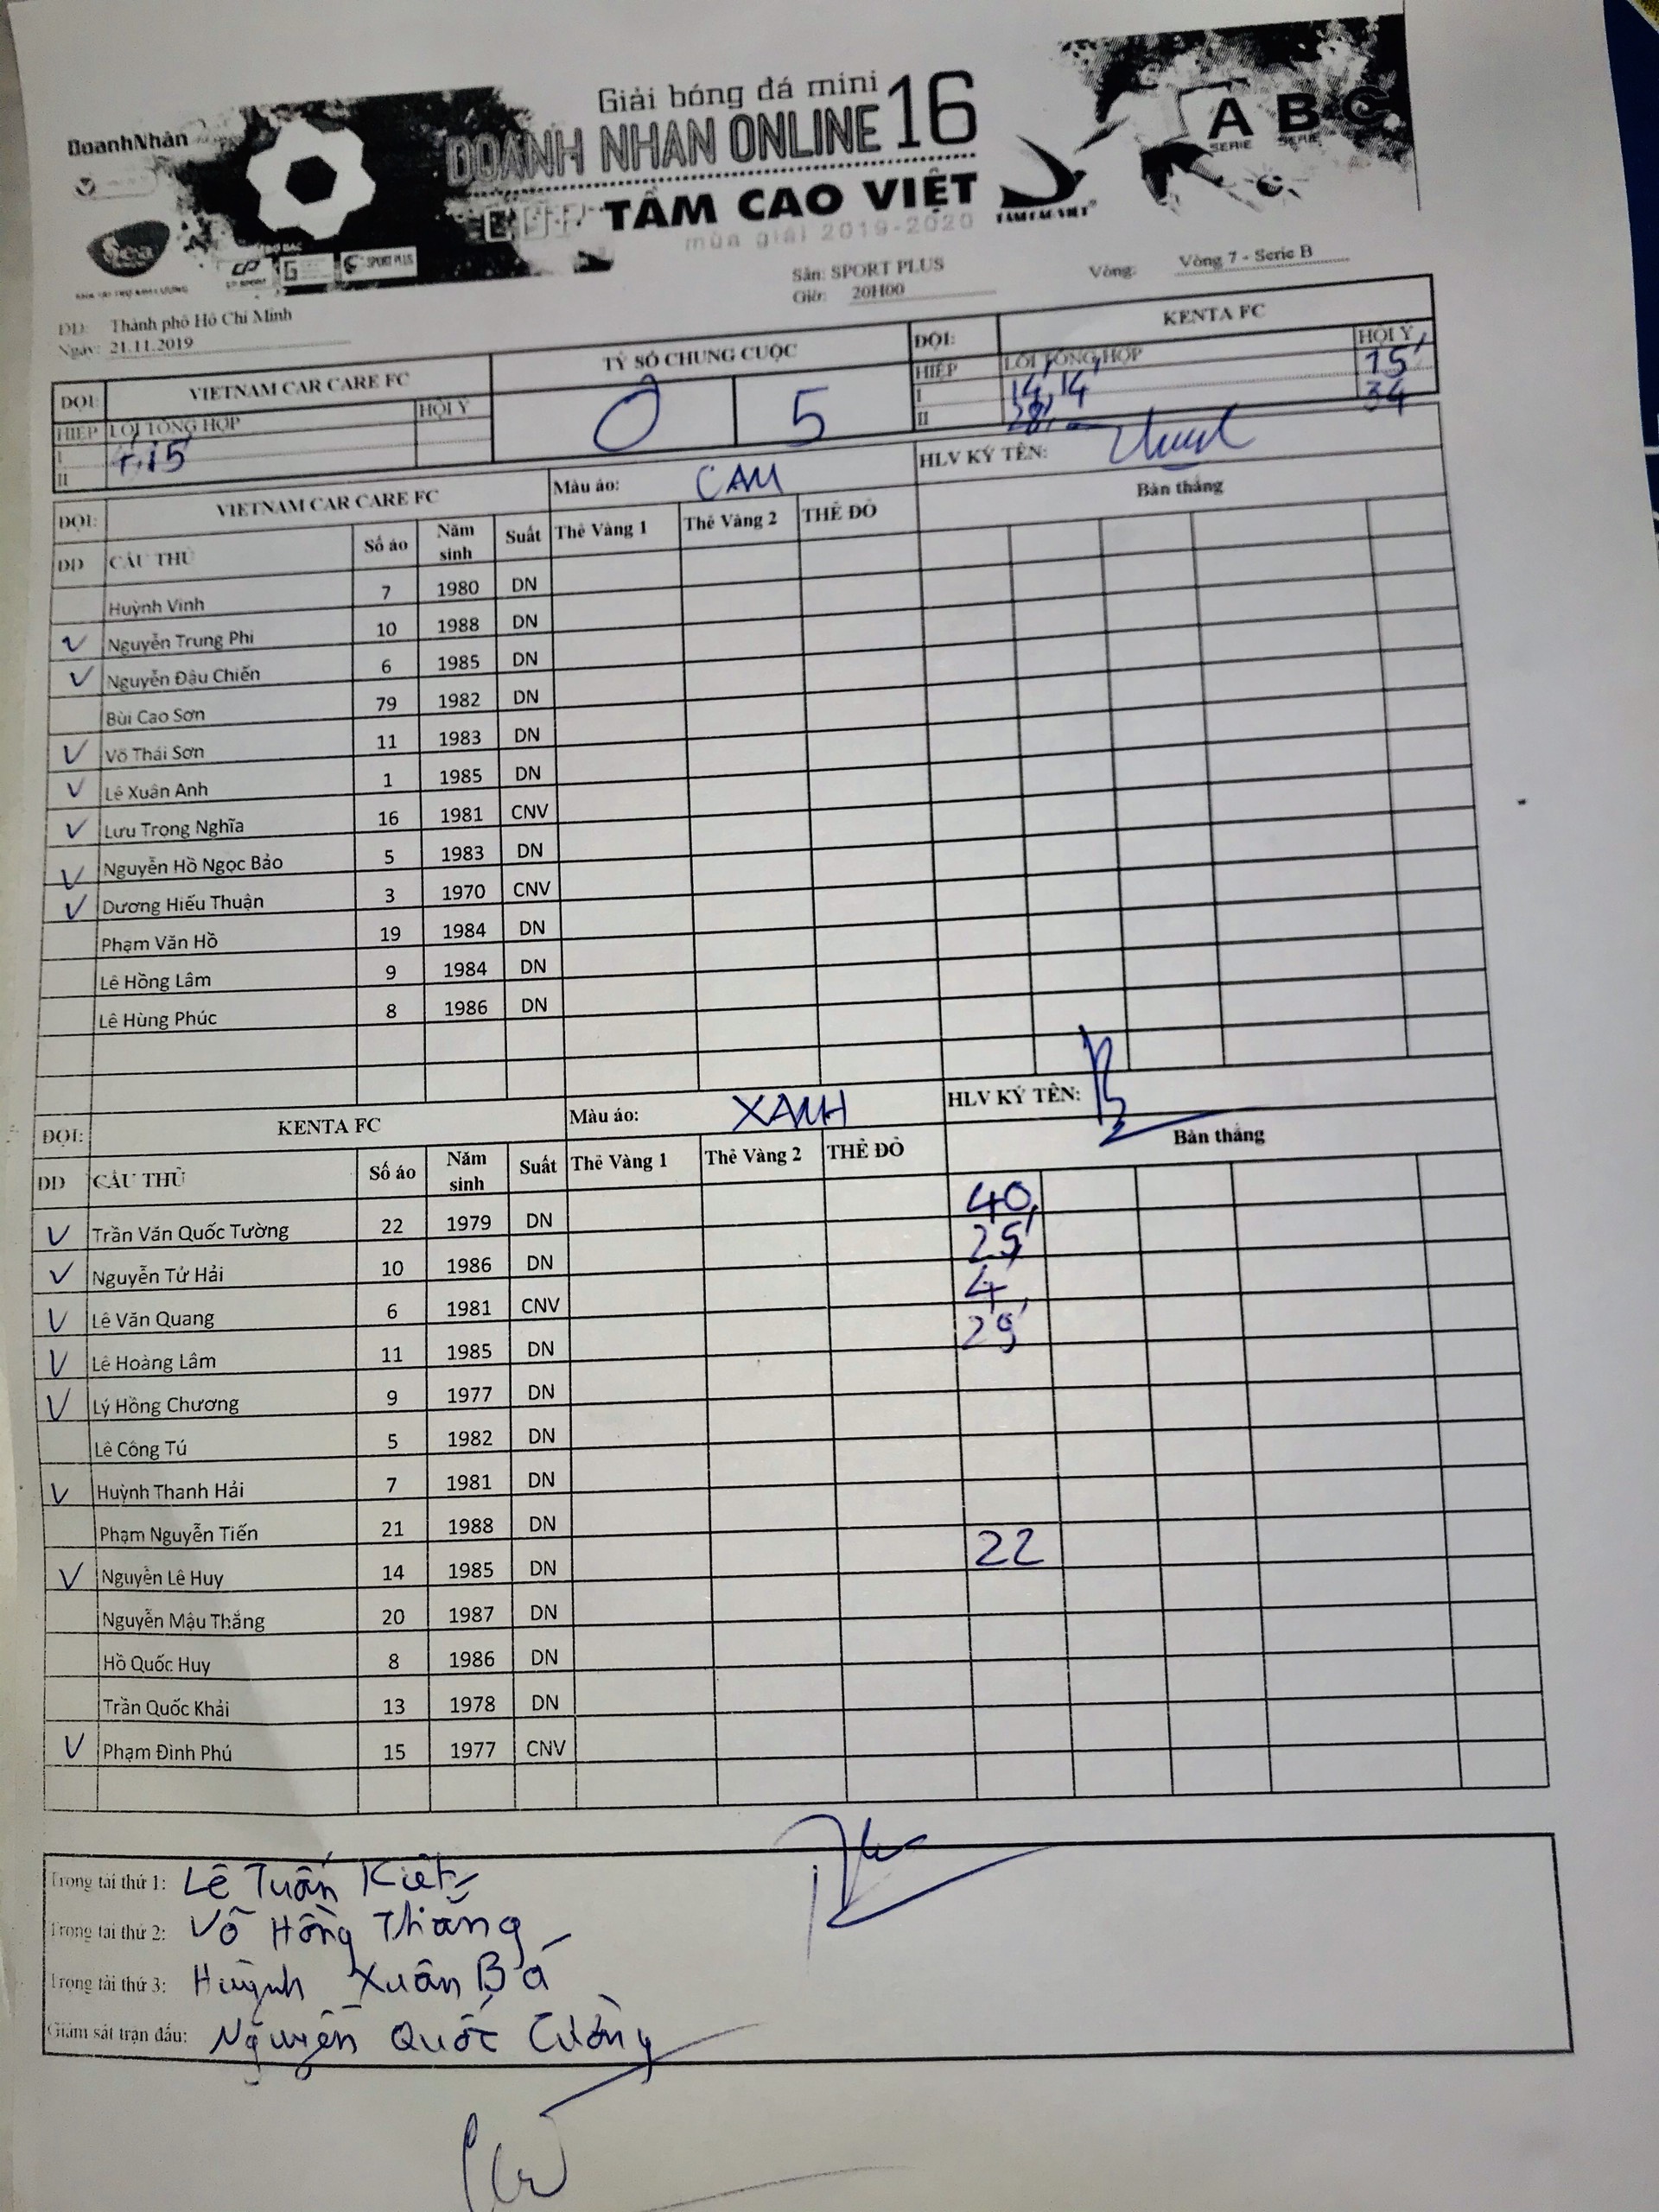 Giải bóng đá mini
DoanhNhân
DOANH NHAN ONLINE 16
TẦM CAO VIỆT
mùa giải 2019-2020
TẦM CAO VIỆT
A B C
SERIE SERIE
SPORT PLUS
ĐĐ: Thành phố Hồ Chí Minh
Ngày: 21.11.2019
Sân: SPORT PLUS
Giờ: 20H00
Vòng: Vòng 7 - Serie B
ĐỘI: VIETNAM CAR CARE FC TỶ SỐ CHUNG CUỘC ĐỘI: KENTA FC
HIỆP LỖI TỔNG HỢP HỘI Ý 0 5 HIỆP LỖI TỔNG HỢP HỘI Ý
I I 14, 14' 15'
II II 28' 34
ĐỘI: VIETNAM CAR CARE FC Màu áo: CAM HLV KÝ TÊN:
DD CẦU THỦ Số áo Năm sinh Suất Thẻ Vàng 1 Thẻ Vàng 2 THẺ ĐỎ Bàn thắng
Huỳnh Vinh 7 1980 DN
Nguyễn Trung Phi 10 1988 DN
Nguyễn Đậu Chiến 6 1985 DN
Bùi Cao Sơn 79 1982 DN
Võ Thái Sơn 11 1983 DN
Lê Xuân Anh 1 1985 DN
Lưu Trọng Nghĩa 16 1981 CNV
Nguyễn Hồ Ngọc Bảo 5 1983 DN
Dương Hiếu Thuận 3 1970 CNV
Phạm Văn Hồ 19 1984 DN
Lê Hồng Lâm 9 1984 DN
Lê Hùng Phúc 8 1986 DN
ĐỘI: KENTA FC Màu áo: XANH HLV KÝ TÊN:
DD CẦU THỦ Số áo Năm sinh Suất Thẻ Vàng 1 Thẻ Vàng 2 THẺ ĐỎ Bàn thắng
Trần Văn Quốc Tường 22 1979 DN 40,
Nguyễn Tử Hải 10 1986 DN 25'
Lê Văn Quang 6 1981 CNV 4,
Lê Hoàng Lâm 11 1985 DN 29'
Lý Hồng Chương 9 1977 DN
Lê Công Tú 5 1982 DN
Huỳnh Thanh Hải 7 1981 DN
Phạm Nguyễn Tiến 21 1988 DN
Nguyễn Lê Huy 14 1985 DN 22
Nguyễn Mậu Thắng 20 1987 DN
Hồ Quốc Huy 8 1986 DN
Trần Quốc Khải 13 1978 DN
Phạm Đình Phú 15 1977 CNV
Trọng tài thứ 1: Lê Tuấn Kiệt
Trọng tài thứ 2: Võ Hồng Thắng
Trọng tài thứ 3: Huỳnh Xuân Bá
Giám sát trận đấu: Nguyễn Quốc Cường